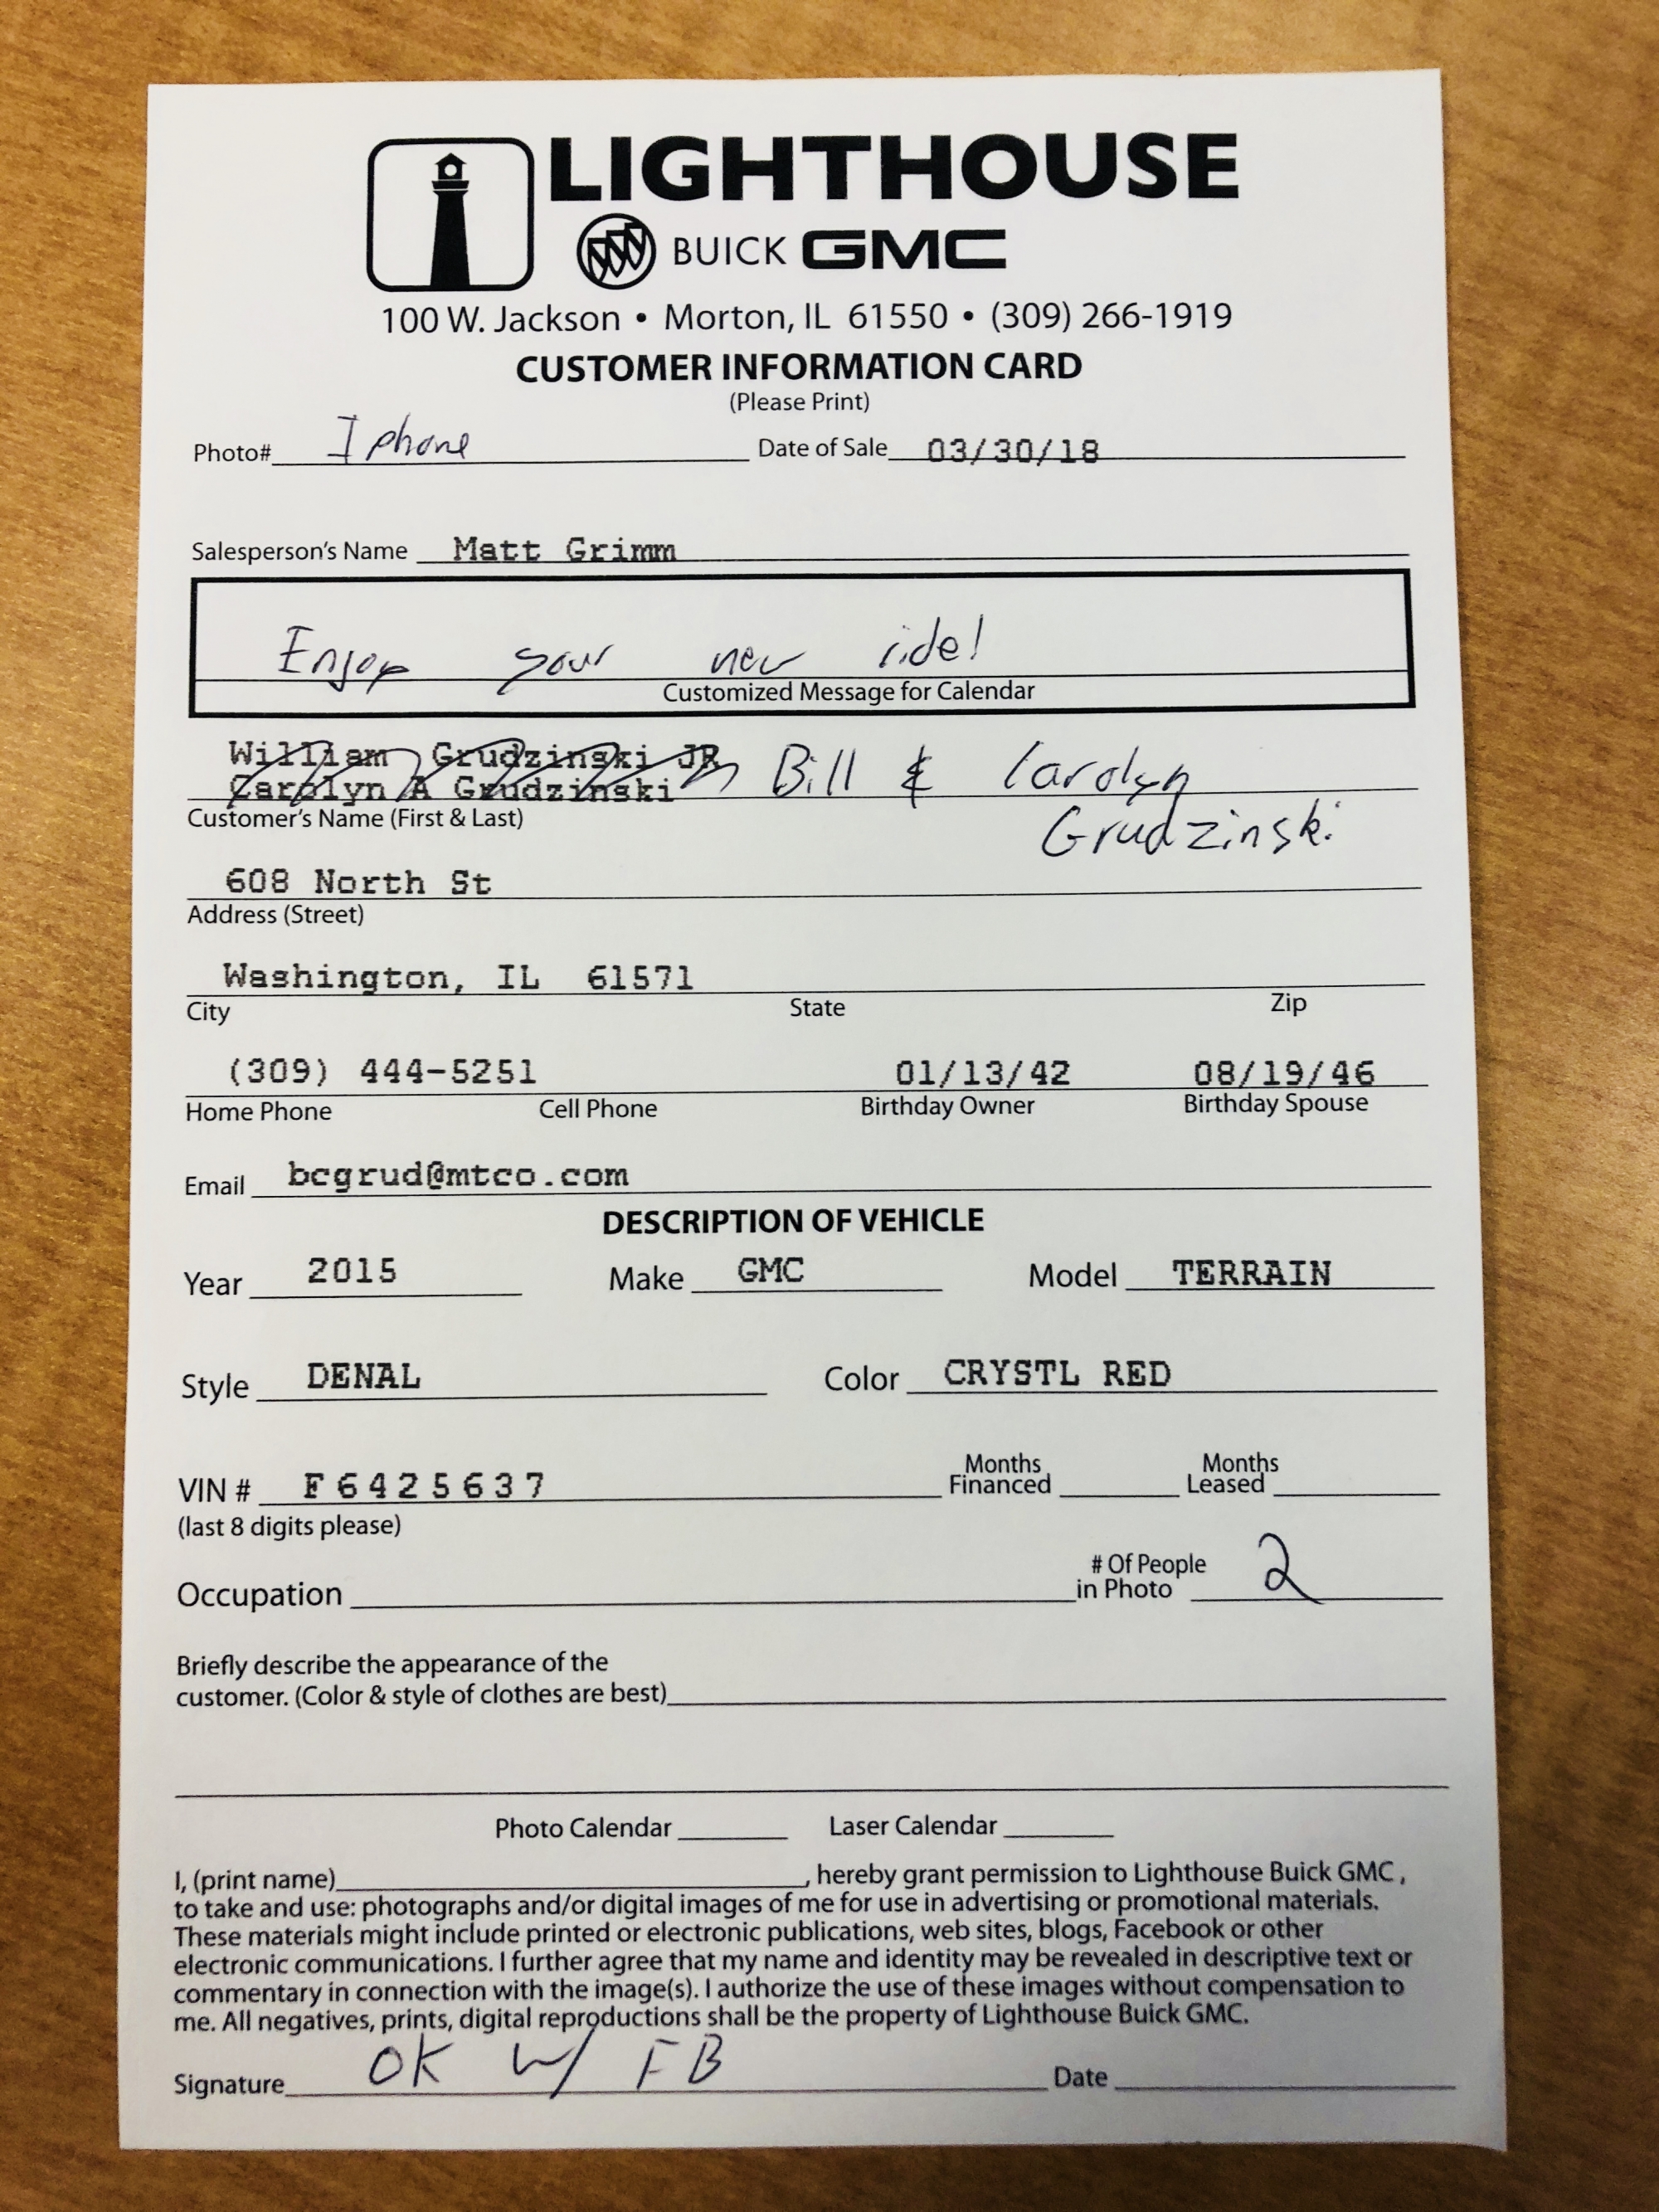 LIGHTHOUSE
BUICK GMC
100 W. Jackson • Morton, IL 61550 • (309) 266-1919
CUSTOMER INFORMATION CARD
(Please Print)
Photo# Iphone Date of Sale 03/30/18
Salesperson's Name Matt Grimm
Enjoy your new ride!
Customized Message for Calendar
William Grudzinski JR
Carolyn A Grudzinski Bill & Carolyn
Grudzinski
Customer's Name (First & Last)
608 North St
Address (Street)
Washington, IL 61571
City State Zip
(309) 444-5251 01/13/42 08/19/46
Home Phone Cell Phone Birthday Owner Birthday Spouse
Email bcgrud@mtco.com
DESCRIPTION OF VEHICLE
Year 2015 Make GMC Model TERRAIN
Style DENAL Color CRYSTL RED
VIN # F6425637 Months Financed Months Leased
(last 8 digits please)
Occupation # Of People in Photo 2
Briefly describe the appearance of the
customer. (Color & style of clothes are best)
Photo Calendar Laser Calendar
I, (print name) , hereby grant permission to Lighthouse Buick GMC ,
to take and use: photographs and/or digital images of me for use in advertising or promotional materials.
These materials might include printed or electronic publications, web sites, blogs, Facebook or other
electronic communications. I further agree that my name and identity may be revealed in descriptive text or
commentary in connection with the image(s). I authorize the use of these images without compensation to
me. All negatives, prints, digital reproductions shall be the property of Lighthouse Buick GMC.
Signature OK w/ FB Date